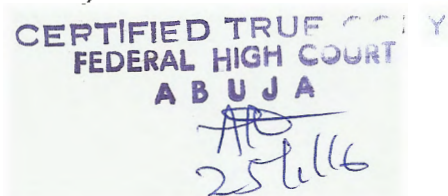 CERTIFIED TRUE COPY
FEDERAL HIGH COURT
ABUJA
25/1/16